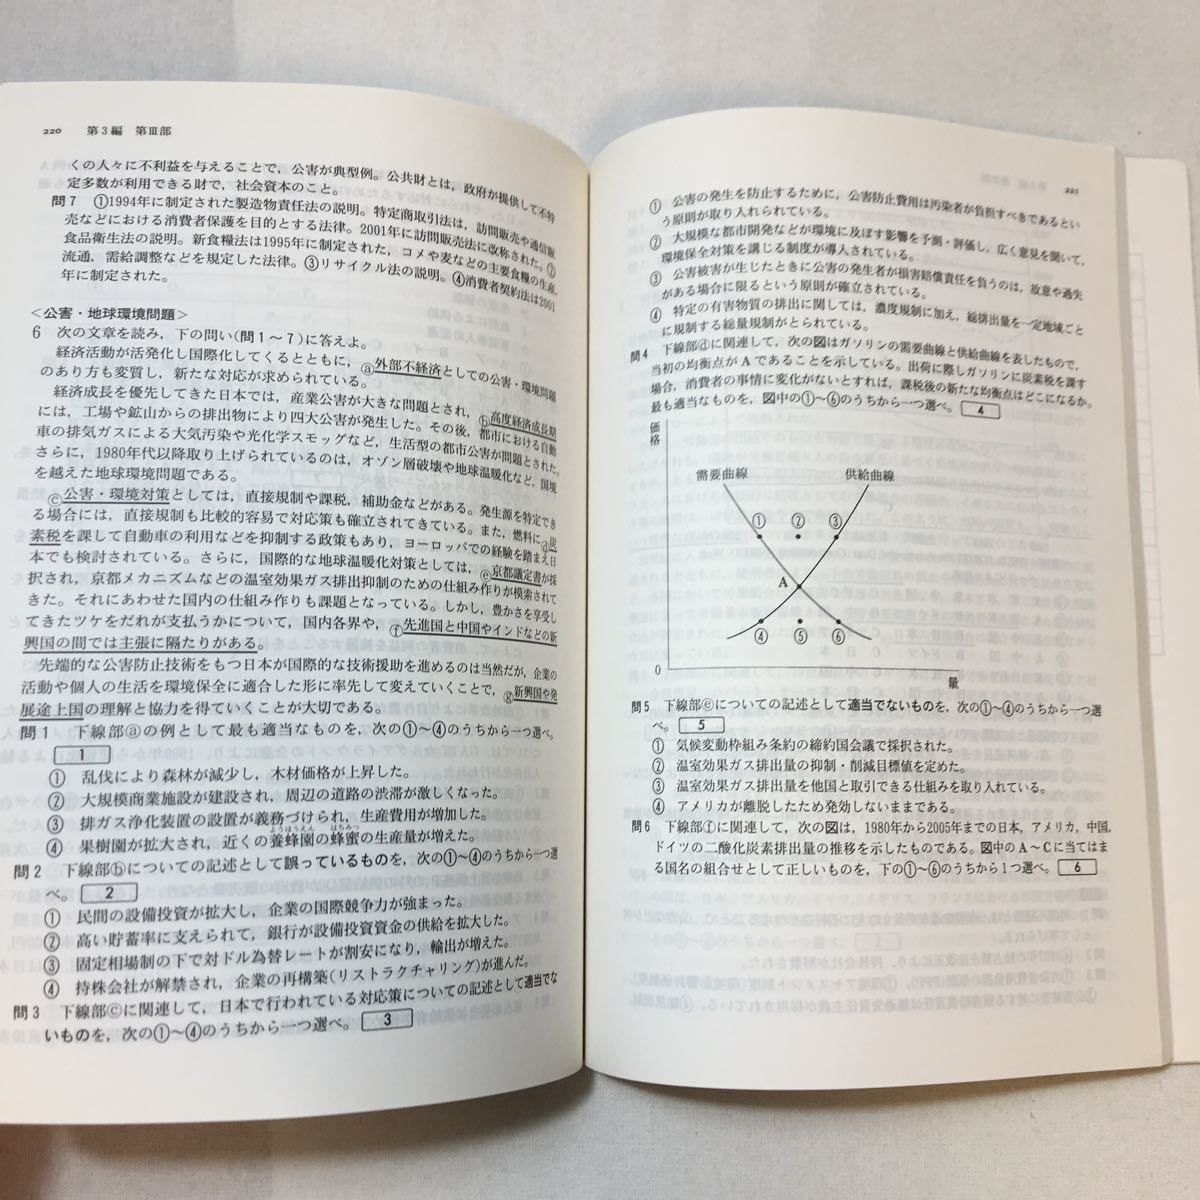 220　第3編　第Ⅲ部
くの人々に不利益を与えることで，公害が典型例。公共財とは，政府が提供して不特
定多数が利用できる財で，社会資本のこと。
問7　①1994年に制定された製造物責任法の説明。特定商取引法は，訪問販売や通信販
売などにおける消費者保護を目的とする法律。2001年に訪問販売法に改称された。②
食品衛生法の説明。新食糧法は1995年に制定された，コメや麦などの主要食糧の生産，
流通，需給調整などを規定した法律。③リサイクル法の説明。④消費者契約法は2001
年に制定された。
＜公害・地球環境問題＞
6　次の文章を読み，下の問い（問1〜7）に答えよ。
経済活動が活発化し国際化してくるとともに，ⓐ外部不経済としての公害・環境問題
のあり方も変質し，新たな対応が求められている。
経済成長を優先してきた日本では，産業公害が大きな問題とされ，ⓑ高度経済成長期
には，工場や鉱山からの排出物により四大公害が発生した。その後，都市における自動
車の排気ガスによる大気汚染や光化学スモッグなど，生活型の都市公害が問題とされた。
さらに，1980年代以降取り上げられているのは，オゾン層破壊や地球温暖化など，国境
を越えた地球環境問題である。
ⓒ公害・環境対策としては，直接規制や課税，補助金などがある。発生源を特定でき
る場合には，直接規制も比較的容易で対応策も確立されてきている。また，燃料にⓓ炭
素税を課して自動車の利用などを抑制する政策もあり，ヨーロッパでの経験を踏まえ日
本でも検討されている。さらに，国際的な地球温暖化対策としては，ⓔ京都議定書が採
択され，京都メカニズムなどの温室効果ガス排出抑制のための仕組みが模索されて
きた。それにあわせた国内の仕組み作りも課題となっている。しかし，豊かさを享受し
てきたツケをだれが支払うかについて，国内各界や，ⓕ先進国と中国やインドなどの新
興国の間では主張に隔たりがある。
先端的な公害防止技術をもつ日本が国際的な技術援助を進めるのは当然だが，企業の
活動や個人の生活を環境保全に適合した形に率先して変えていくことで，ⓖ新興国や発
展途上国の理解と協力を得ていくことが大切である。
問1　下線部ⓐの例として最も適当なものを，次の①〜④のうちから一つ選べ。
1
①　乱伐により森林が減少し，木材価格が上昇した。
②　大規模商業施設が建設され，周辺の道路の渋滞が激しくなった。
③　排ガス浄化装置の設置が義務づけられ，生産費用が増加した。
ようほうえん　はちみつ
④　果樹園が拡大され，近くの養蜂園の蜂蜜の生産量が増えた。
問2　下線部ⓑについての記述として誤っているものを，次の①〜④のうちから一つ選
べ。 2
①　民間の設備投資が拡大し，企業の国際競争力が強まった。
②　高い貯蓄率に支えられて，銀行が設備投資資金の供給を拡大した。
③　固定相場制の下で対ドル為替レートが割安になり，輸出が増えた。
④　持株会社が解禁され，企業の再構築（リストラクチャリング）が進んだ。
問3　下線部ⓒに関連して，日本で行われている対応策についての記述として適当でな
いものを，次の①〜④のうちから一つ選べ。 3
221
①　公害の発生を防止するために，公害防止費用は汚染者が負担すべきであるとい
う原則が取り入れられている。
②　大規模な都市開発などが環境に及ぼす影響を予測・評価し，広く意見を聞いて，
環境保全対策を講じる制度が導入されている。
③　公害被害が生じたときに公害の発生者が損害賠償責任を負うのは，故意や過失
がある場合に限るという原則が確立されている。
④　特定の有害物質の排出に関しては，濃度規制に加え，総排出量を一定地域ごと
に規制する総量規制がとられている。
問4　下線部ⓓに関連して，次の図はガソリンの需要曲線と供給曲線を表したもので，
当初の均衡点がAであることを示している。出荷に際しガソリンに炭素税を課す
場合，消費者の事情に変化がないとすれば，課税後の新たな均衡点はどこになるか。
最も適当なものを，図中の①〜⑥のうちから一つ選べ。 4
価格
需要曲線　供給曲線
①　②　③
A
④　⑤　⑥
0
量
問5　下線部ⓔについての記述として適当でないものを，次の①〜④のうちから一つ選
べ。 5
①　気候変動枠組み条約の締約国会議で採択された。
②　温室効果ガス排出量の抑制・削減目標値を定めた。
③　温室効果ガス排出量を他国と取引できる仕組みを取り入れている。
④　アメリカが離脱したため発効しないままである。
問6　下線部ⓕに関連して，次の図は，1980年から2005年までの日本，アメリカ，中国，
ドイツの二酸化炭素排出量の推移を示したものである。図中のA〜Cに当てはま
る国名の組合せとして正しいものを，下の①〜⑥のうちから1つ選べ。 6